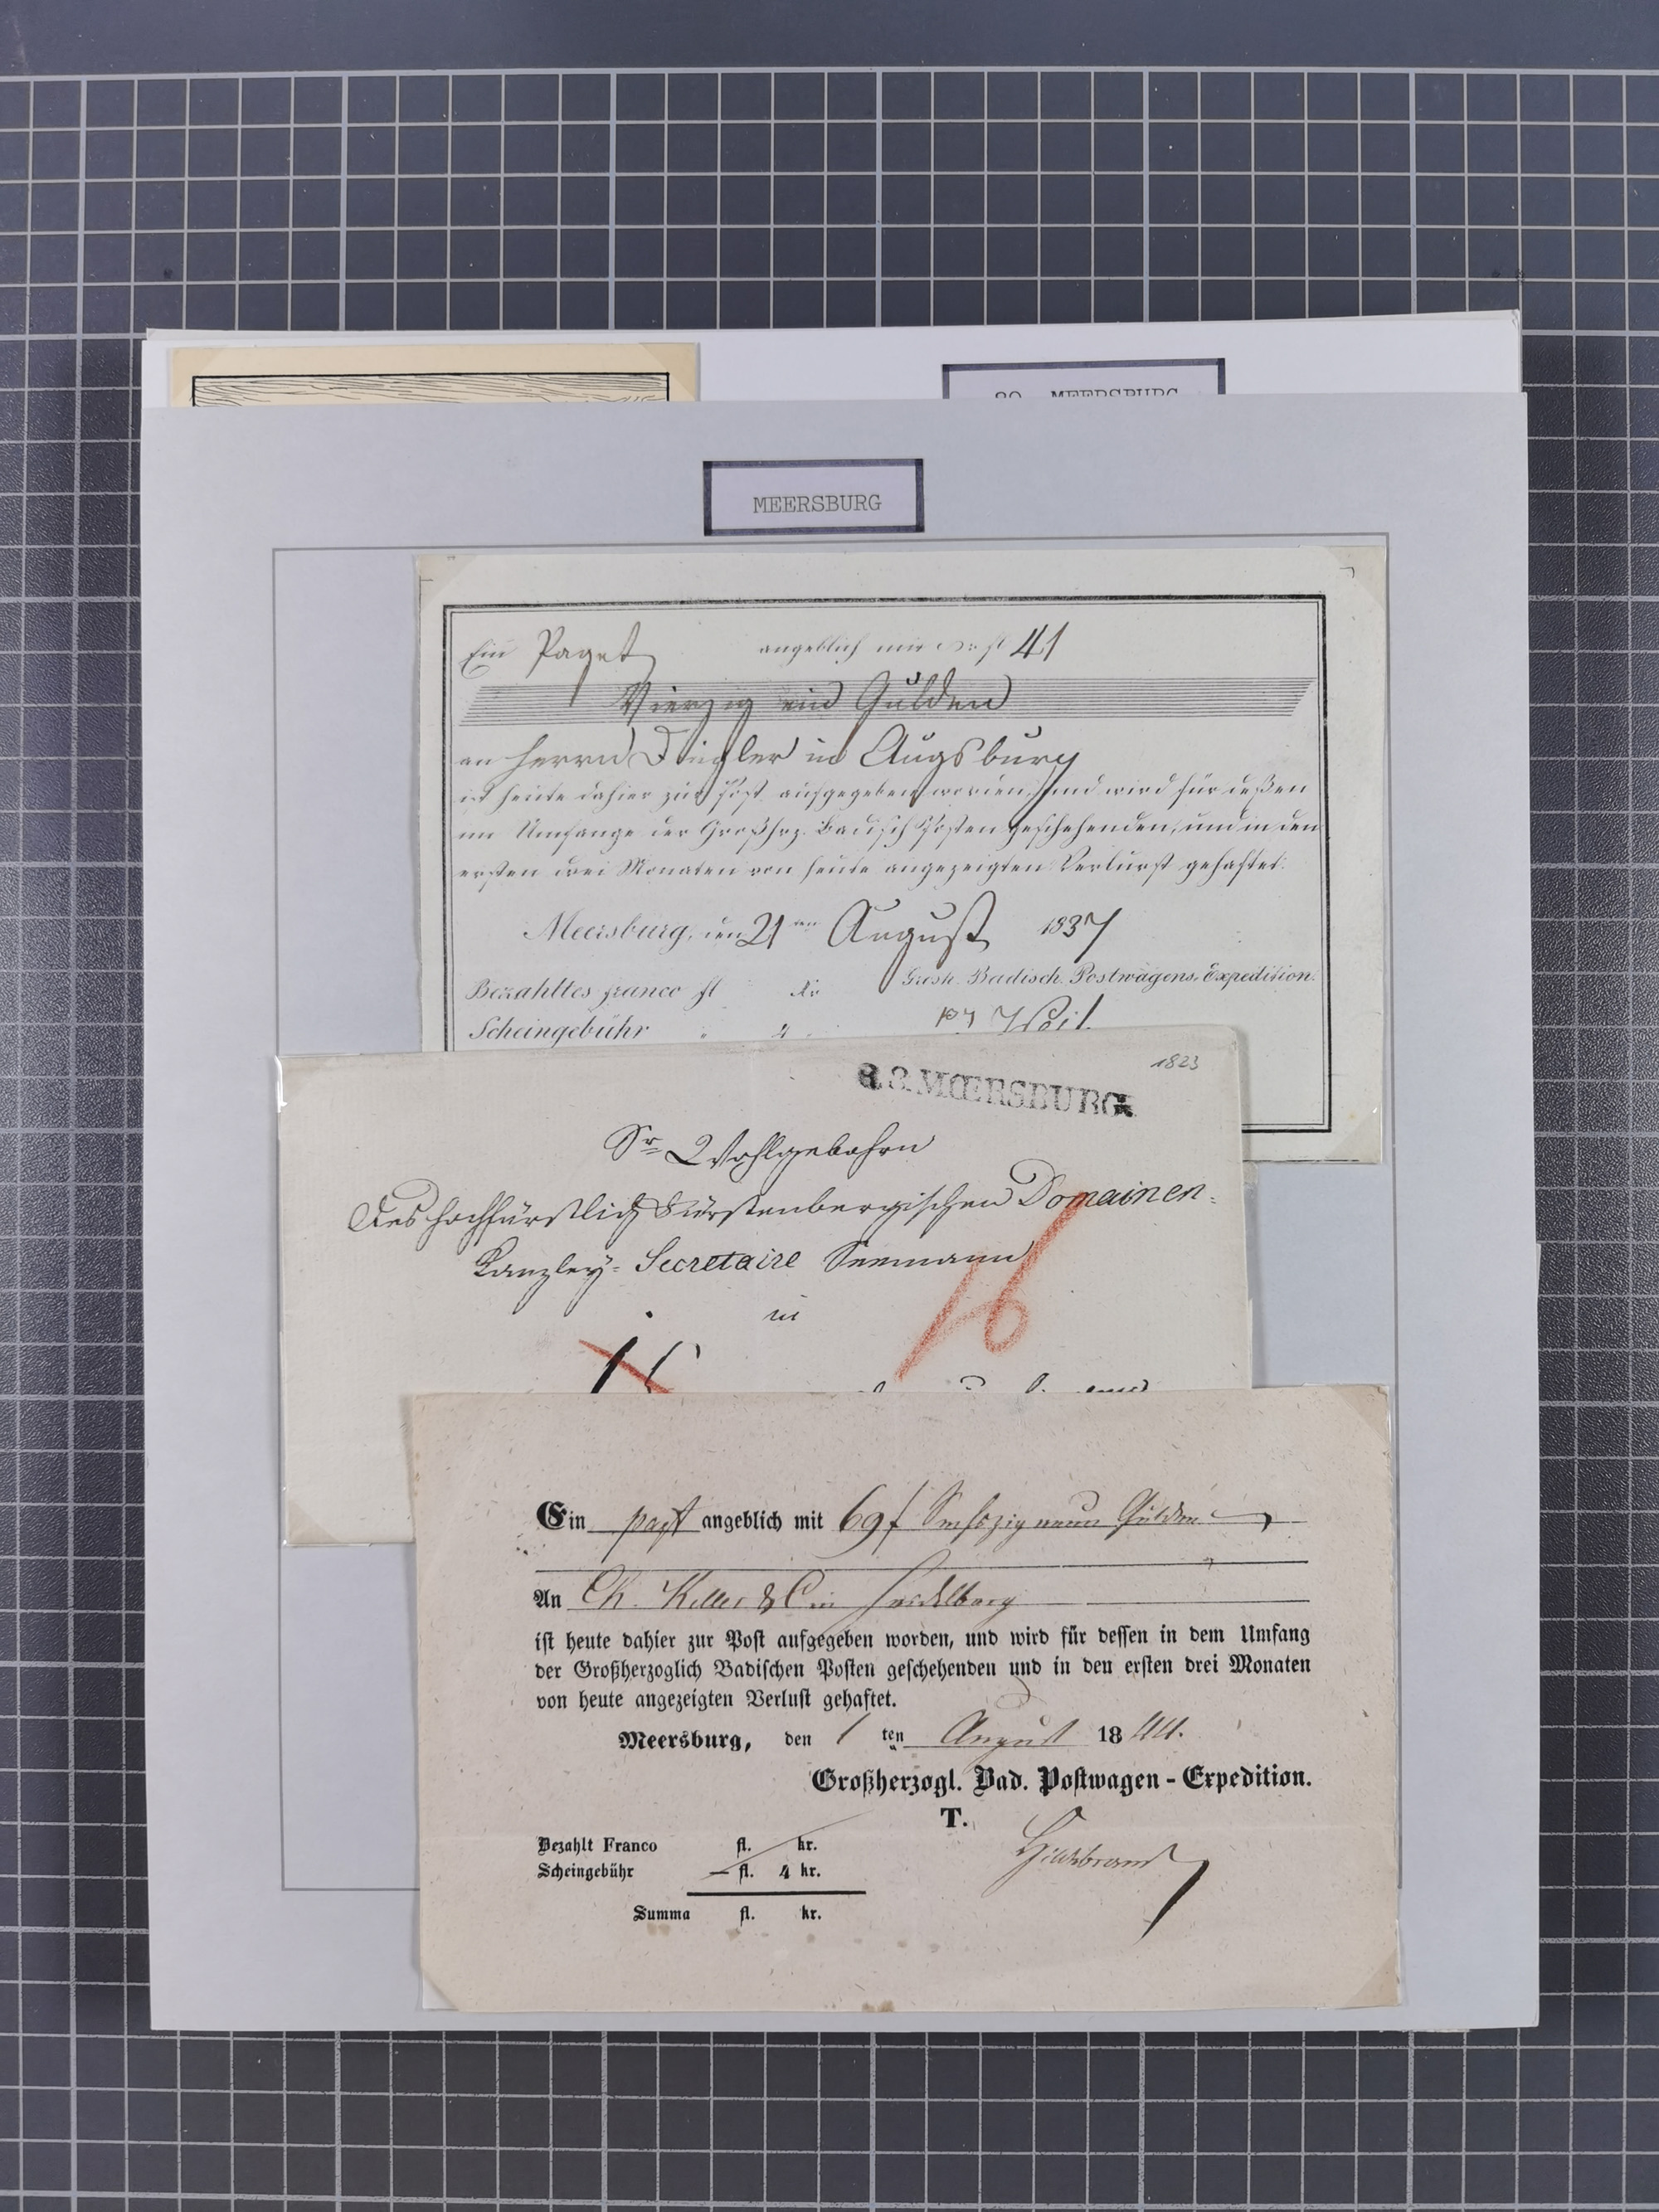 MEERSBURG
MEERSBURG
Ein Paquet angeblich mit fl 41
Vierzig ein Gulden
an Herrn Dingler in Augsburg
ist heute dahier zur Post aufgegeben worden, und wird für deßen
im Umfange der Großhrz. Badisch Posten geschehenden, und in den
ersten drei Monaten von heute angezeigten Verlurst gehaftet.
Meersburg, den 21 ten August 1837
Grosh. Badisch. Postwägens-Expedition.
Bezahltes franco fl kr
Scheingebühr " 4 "
1823
R.3.MŒRSBURG
Sr Wohlgebohrn
des hochfürstlich Fürstenbergischen Domainen-
Kanzley-Secretaire Seemann
in
16
Ein paqt angeblich mit 69 f Sechszig neun Gulden
An Ch. Keller & C in Heidelberg
ist heute dahier zur Post aufgegeben worden, und wird für dessen in dem Umfang
der Großherzoglich Badischen Posten geschehenden und in den ersten drei Monaten
von heute angezeigten Verlust gehaftet.
Meersburg, den 1 ten August 1844.
Großherzogl. Bad. Postwagen-Expedition.
T.
Hildebrand
Bezahlt Franco fl. kr.
Scheingebühr — fl. 4 kr.
Summa fl. kr.